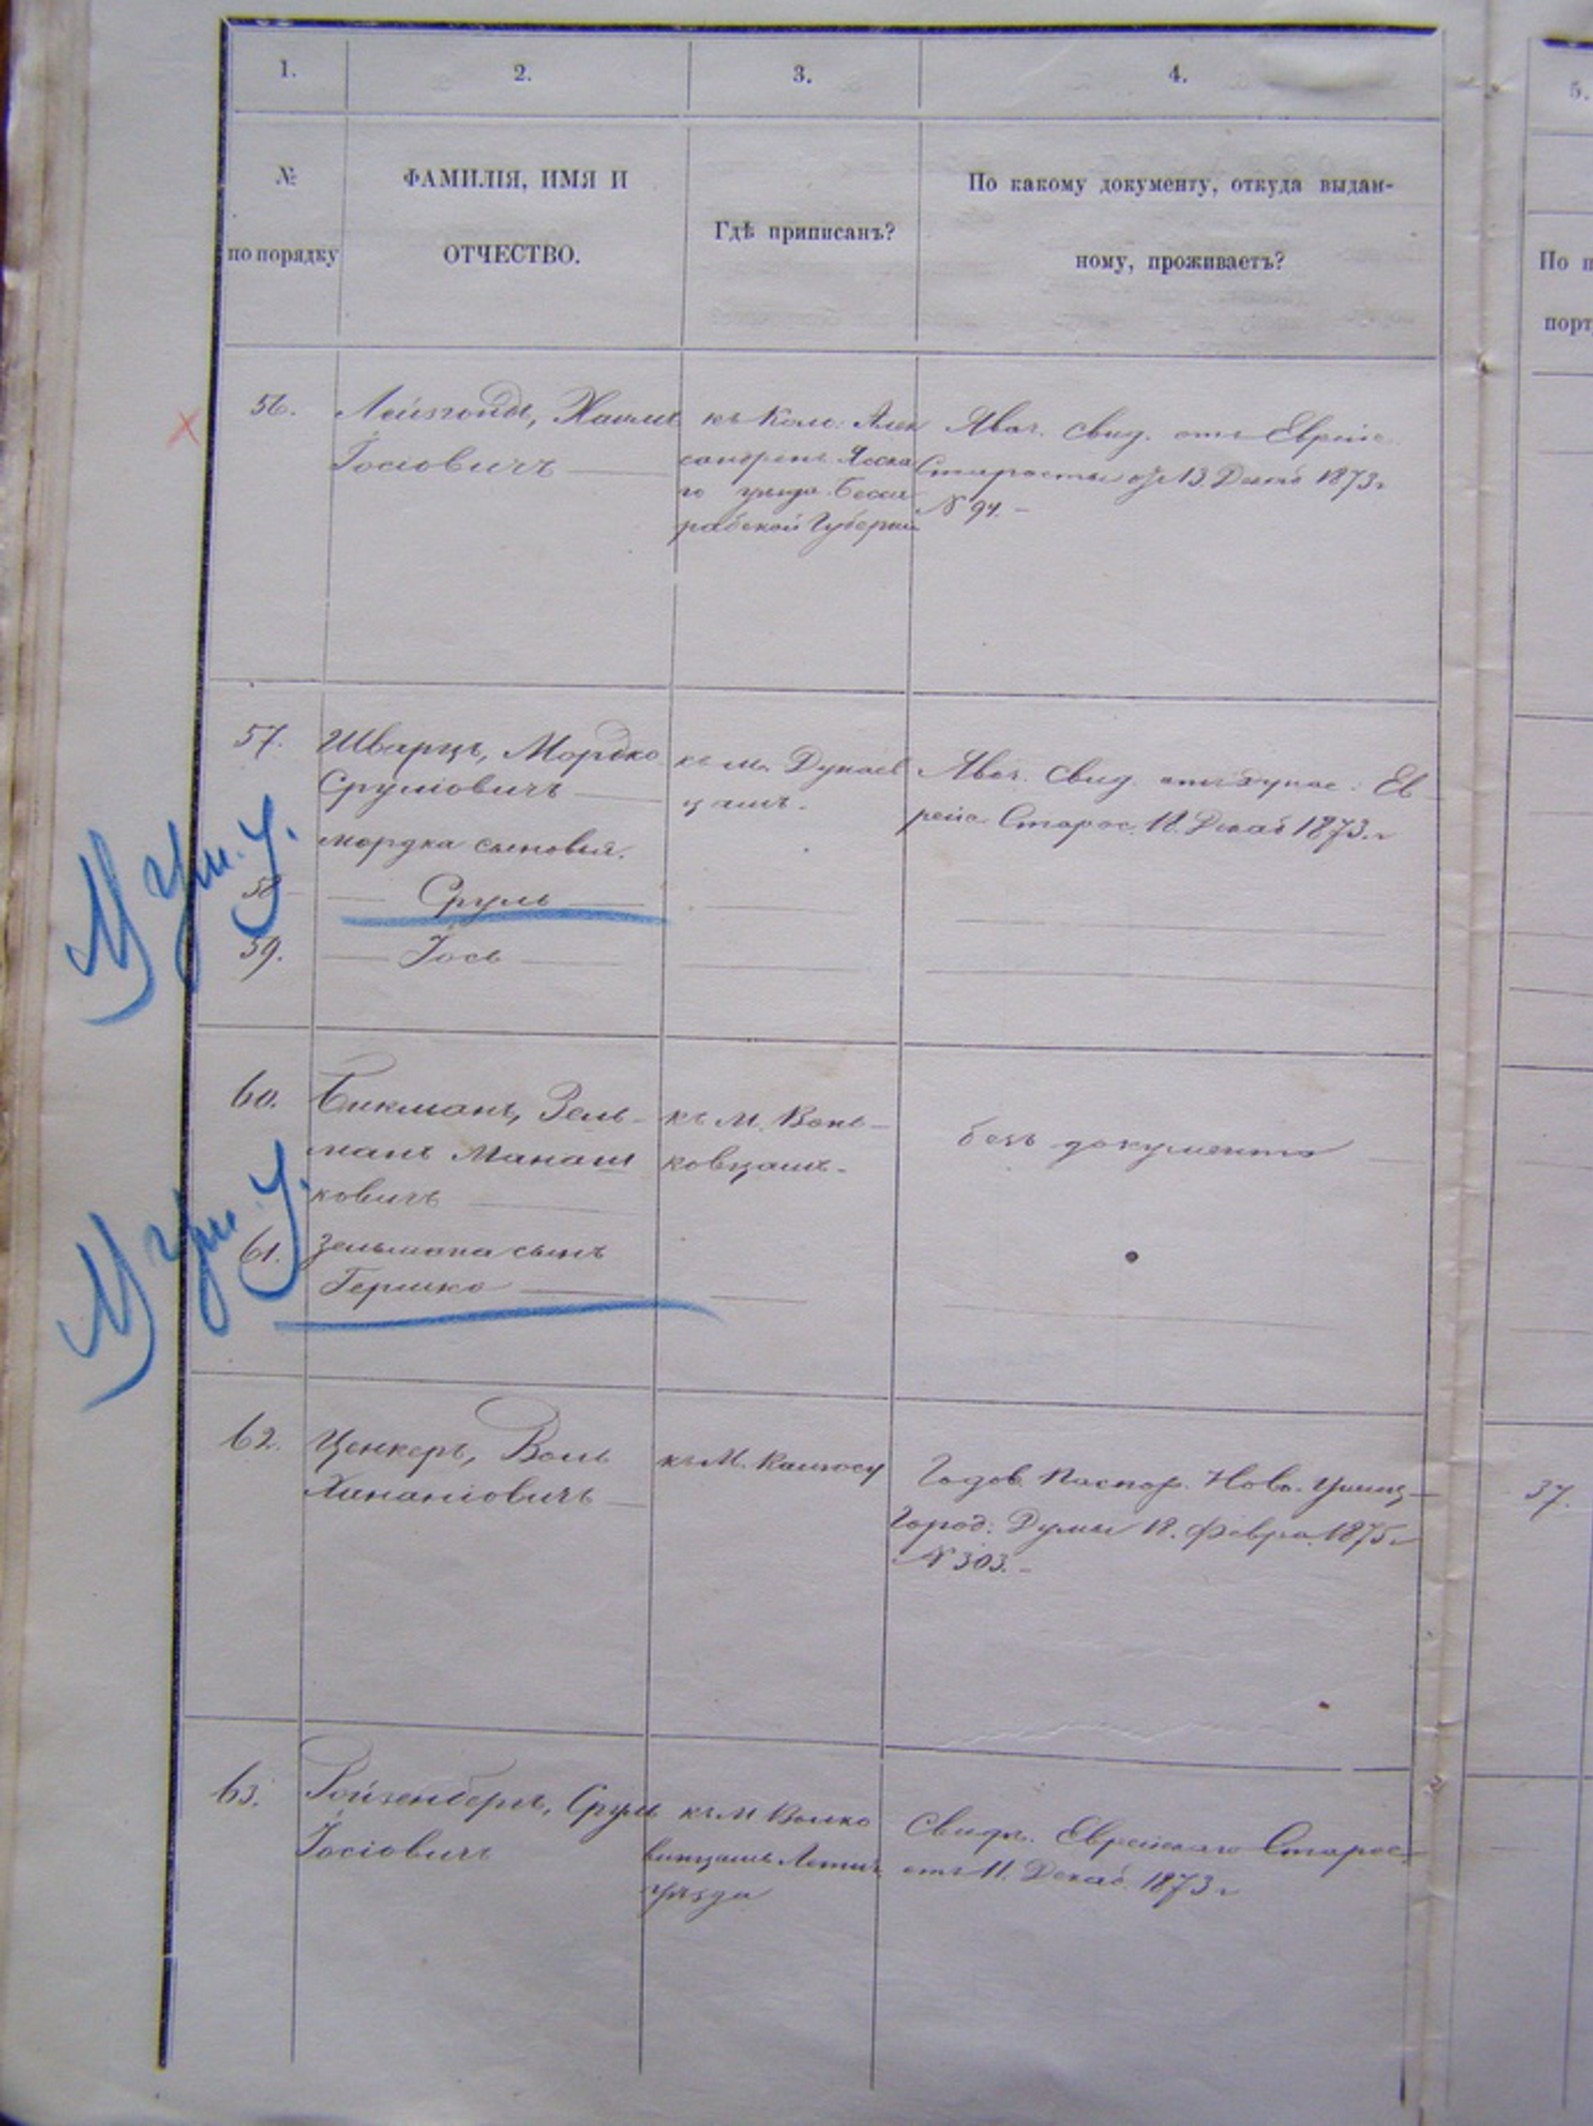 1. 2. 3. 4. 5.
№ по порядку
ФАМИЛІЯ, ИМЯ И
ОТЧЕСТВО.
Гдѣ приписанъ?
По какому документу, откуда выдан-
ному, проживаетъ?
По п
порт
56.
Іосіовичъ
къ Коло: Алек
сандрень Ясска
го уѣзда Бесса
рабской Губерніи
Явоч. свид. отъ Еврейс
Старосты отъ 13. Декаб 1873 г
№ 94.
57.
Шварцъ, Мордко
Сруліовичъ
мордка сыновья.
къ м. Дунаев
цамъ.
Явоч. свид. отъ дунае: Ев
рейс. Старос. 18. Декаб 1873. г
58
Сруль
59.
Іось
М Уш. у.
60.
Бикманъ, Зель-
манъ Манаш
ковичъ
къ М. Вонь-
ковцамъ.
безъ документа
61.
Зельмана сынъ
Гершко
М Уш. у.
62.
Ценкеръ, Воль
Хананіовичъ
къ М. Калюсу
Годов. Паспор. Ново-Ушиц
Город: Думы 18. Февра. 1875 г
№ 303.
37.
63.
Ройзенбергъ, Срул
Іосіовичъ
къ М Волко
винцамъ Летич
уѣзда
Свидѣ. Еврейскаго Старос.
отъ 11. Декаб. 1873 г